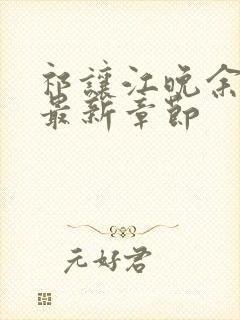 祁讓江晚余
最新章節
元好君